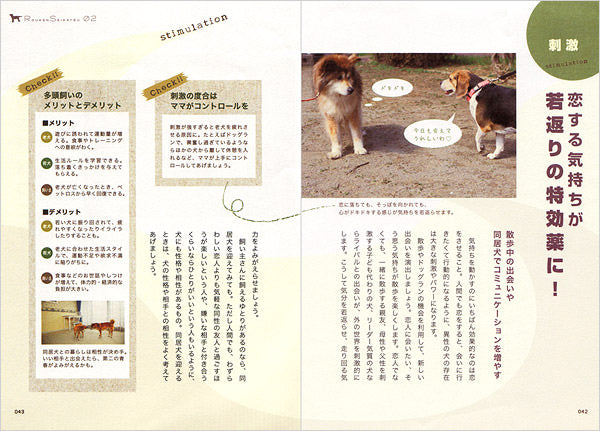 刺激
stimulation
恋する気持ちが
若返りの特効薬に!
ドキドキ
今日も会えて
うれしいわ♡
恋に落ちても、そっぽを向かれても、
心がドキドキする感じが気持ちを若返らせます。
散歩中の出会いや
同居犬でコミュニケーションを増やす
気持ちを動かすのにいちばん効果的なのは恋
をさせること。人間でも恋をすると、会いに行
きたくて行動的になるように、異性の犬の存在
は大きな刺激やパワーになります。
散歩やドッグランの機会を利用して、新しい
出会いを演出しましょう。恋人に会いたい、そ
う思う気持ちが散歩を楽しくします。恋人でな
くても、一緒に散歩する親友、母性や父性を刺
激する子ども代わりの犬、リーダー気質の犬な
らライバルとの出会いが、外の世界を刺激的に
します。こうして気分を若返らせ、走り回る気
042
力をよみがえらせましょう。
飼い主さんに飼えるゆとりがあるのなら、同
居犬を迎えてみても。ただし人間でも、わずら
わしい恋人よりも気軽な同性の友人と過ごすほ
うが楽しいという人や、嫌いな相手と付き合う
くらいならひとりがいいという人もいるように、
犬にも性格や相性があるもの。同居犬を迎える
ときは、犬の性格や相手との相性をよく考えて
あげましょう。
ROUKEN SEIKATSU 02
stimulation
Check!!
刺激の度合は
ママがコントロールを
刺激が強すぎると老犬を疲れさ
せる原因に。たとえばドッグラ
ンで、興奮し過ぎているような
らほかの犬から離して休憩を入
れるなど、ママが上手にコント
ロールしてあげましょう。
Check!!
多頭飼いの
メリットとデメリット
■メリット
老犬 遊びに誘われて運動量が増
える。食事やトレーニング
への意欲がわく。
若犬 生活ルールを学習できる。
落ち着くきっかけを与えて
もらえる。
飼い主 老犬が亡くなったとき、ペ
ットロスから早く回復できる。
■デメリット
老犬 若い犬に振り回されて、疲
れやすくなったりイライラ
したりすることも。
若犬 老犬に合わせた生活スタイ
ルで、運動不足や欲求不満
に陥りがちに。
飼い主 食事などのお世話やしつけ
が増えて、体力的・経済的な
負担が大きい。
同居犬との暮らしは相性が決め手。
いい相手と出会えたら、第二の青
春がよみがえるかも。
043